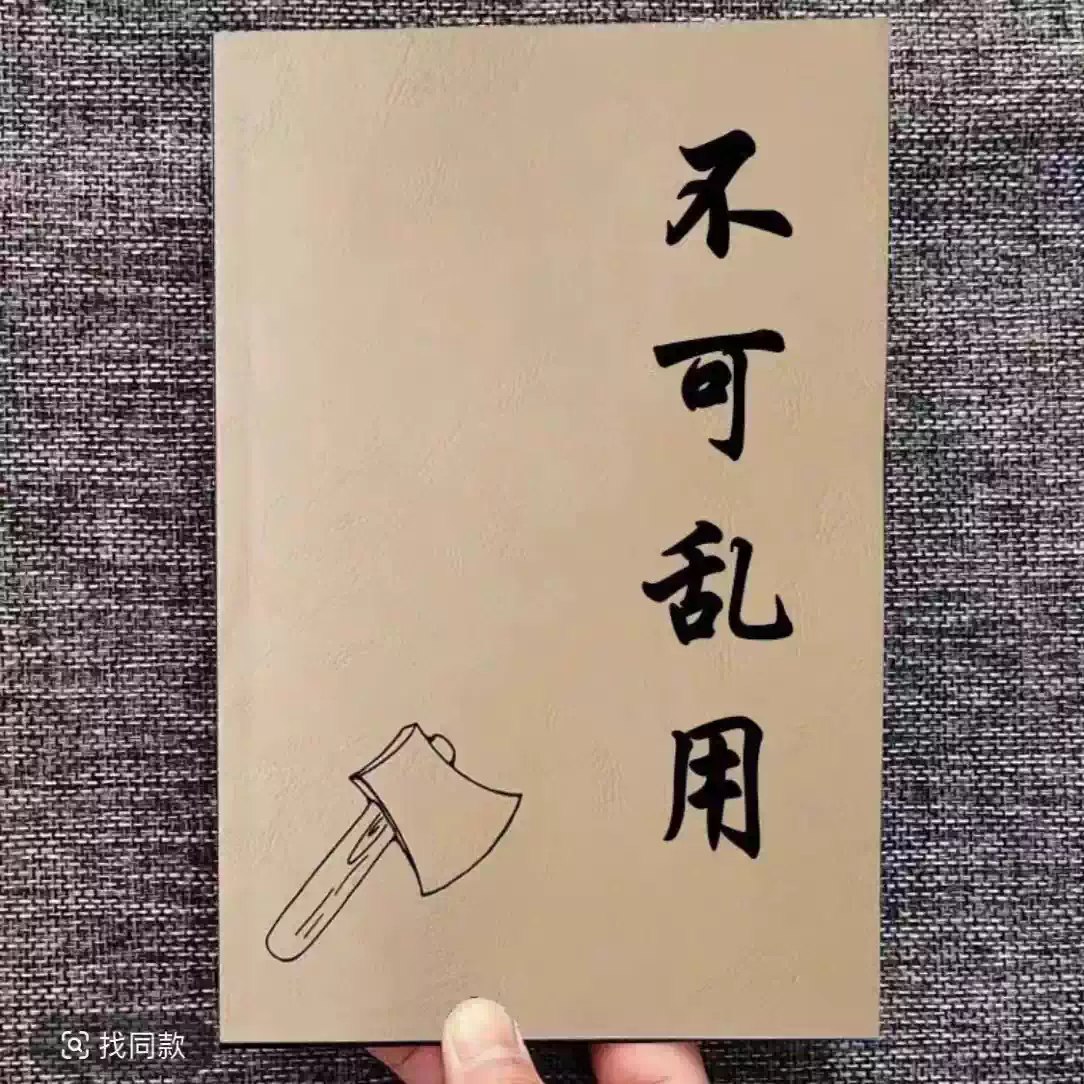 不可乱用
找同款